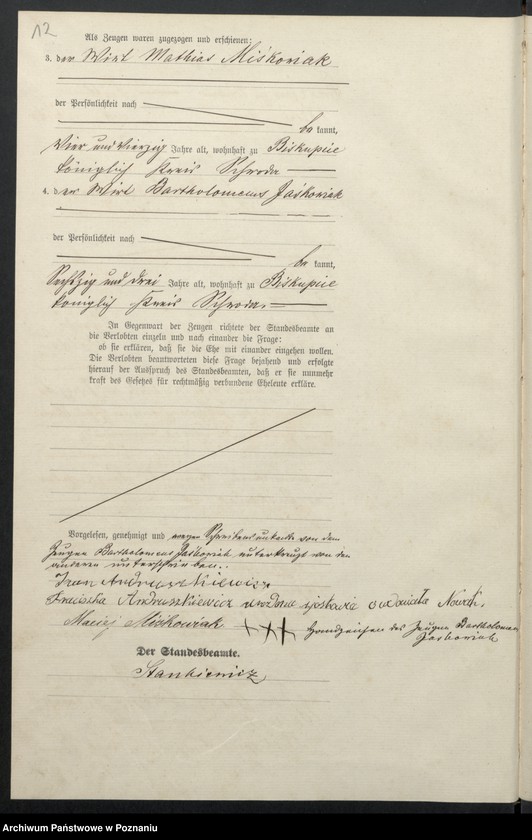 12
Als Zeugen waren zugezogen und erschienen:
3. der Wirt Mathias Miśkowiak
der Persönlichkeit nach
be kannt,
vier und vierzig Jahre alt, wohnhaft zu Biskupice
königlich Kreis Schroda
4. der Wirt Bartholomeus Jaśkowiak
der Persönlichkeit nach
be kannt,
sechszig und drei Jahre alt, wohnhaft zu Biskupice
königlich Kreis Schroda.
In Gegenwart der Zeugen richtete der Standesbeamte an
die Verlobten einzeln und nach einander die Frage:
ob sie erklären, daß sie die Ehe mit einander eingehen wollen.
Die Verlobten beantworteten diese Frage bejahend und erfolgte
hierauf der Ausspruch des Standesbeamten, daß er sie nunmehr
kraft des Gesetzes für rechtmäßig verbundene Eheleute erkläre.
Vorgelesen, genehmigt und wegen Schreibensunkunde von dem
Zeugen Bartholomeus Jaśkowiak unterkreuzt von den
anderen unterschrieben.
Andruszkiewicz
Franciszka Andruszkiewicz
Maciej Miśkowiak +++ Handzeichen des Zeugen Bartholomeus
Jaskowiak
Der Standesbeamte.
Stankiewicz
Archiwum Państwowe w Poznaniu